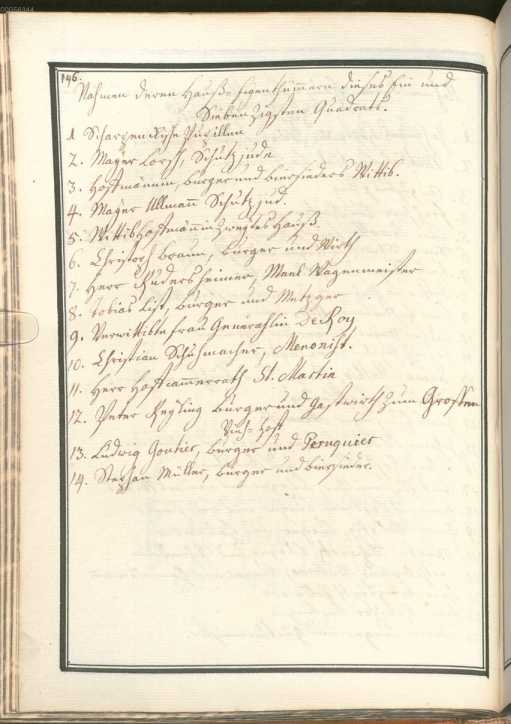 00056344
146.
Nahmen deren Hauße Eigenthümmern dieses Ein und
Siebenzigsten Quadrats.
1 Scharzen Pupillen
2. Mayer Lorch, Schutzjude
3. Hoffmännin, burger und biersieders Wittib.
4. Mayer Ullmann Schutzjud.
5. Wittib Hoffmännin Zweytes Hauß
6. Christoph Braun, burger und Wirth
7. Herr Rudersheimer, Meel Wagenmeister
8. Tobias List, burger und Metzger
9. Verwittibte frau Generahlin De Roy
10. Christian Schuhmacher, Menonist.
11. Herr Hoffcammerrath St. Martin
12. Peter Keyling burger und Gastwirth zum Grossen
Hoff
13. Ludwig Gontier, burger und Peruquier
14. Stephan Müller, burger und biersieder.